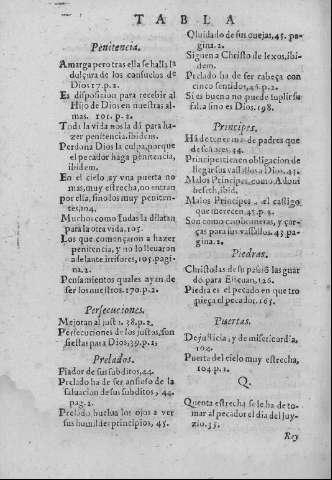 TABLA
Penitencia.
Amarga pero tras ella se halla la
dulçura de los consuelos de
Dios 17. p. 2.
Es disposicion para recebir al
Hijo de Dios en nuestras al
mas. 101. p. 2.
Toda la vida nos la dà para ha-
zer penitencia. ibidem.
Perdona Dios la culpa, porque
el pecador haga penitencia,
ibidem.
En el cielo, ay vna puerta no
mas, muy estrecha, no entran
por ella, sino los muy peniten-
tes, 104.
Muchos como Iudas la dilatan
para la otra vida, 105.
Los que començaron a hazer
penitencia, y no lo lleuaron
adelante irrisores, 105. pagi-
na. 2.
Pensamientos quales ayan de
ser los nuestros. 170. p. 2.
Persecuciones.
Mejoran al just. 38. p. 2.
Persecuciones de los justos, son
fiestas para Dios, 39. p. 2.
Prelados.
Fiador de sus subditos, 44.
Prelado ha de ser ansioso de la
saluacion de sus subditos, 44.
pag. 2.
Prelado buelua los ojos a ver
sus humildes principios, 45.
Oluidado de sus ouejas, 45. pa-
gina. 2.
Siguen a Christo de lexos, ibi-
dem.
Prelado ha de ser cabeça con
cinco sentidos, 45. p. 2.
Si es bueno no puede suplir su
falta sino es Dios. 198.
Principes.
Hà de tener mas de padres que
de señores. 34.
Principes tienen obligacion de
llegar sus vassallos a Dios. 43.
Malos Principes, como Adoni
beseth, ibid.
Malos Principes al castigo
que merecen, 45. p. 2.
Son como cantoneras, y car-
ças para sus vassallos. 43. pa
gina. 2.
Piedras.
Christo das de su passiō las guar
dò para Esteuan, 126.
Piedra es el pecado en que tro
pieça el pecador. 165.
Puertas.
De justicia, y de misericordia,
104.
Puerta del cielo muy estrecha,
104. p. 2.
Q.
Quenta estrecha se le ha de to-
mar al pecador el dia del juy-
zio. 35.
Rey